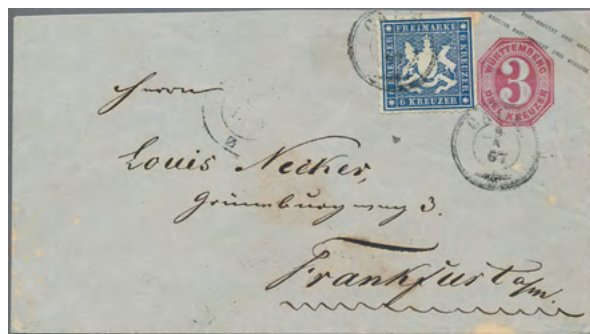 FREIMARKE
6 KREUZER
6 KREUZER
6 KREUZER
WÜRTTEMBERG
3
DREI KREUZER
9
A
67
Herrn
Louis Necker,
Grüneburgweg 3.
Frankfurt a/m.